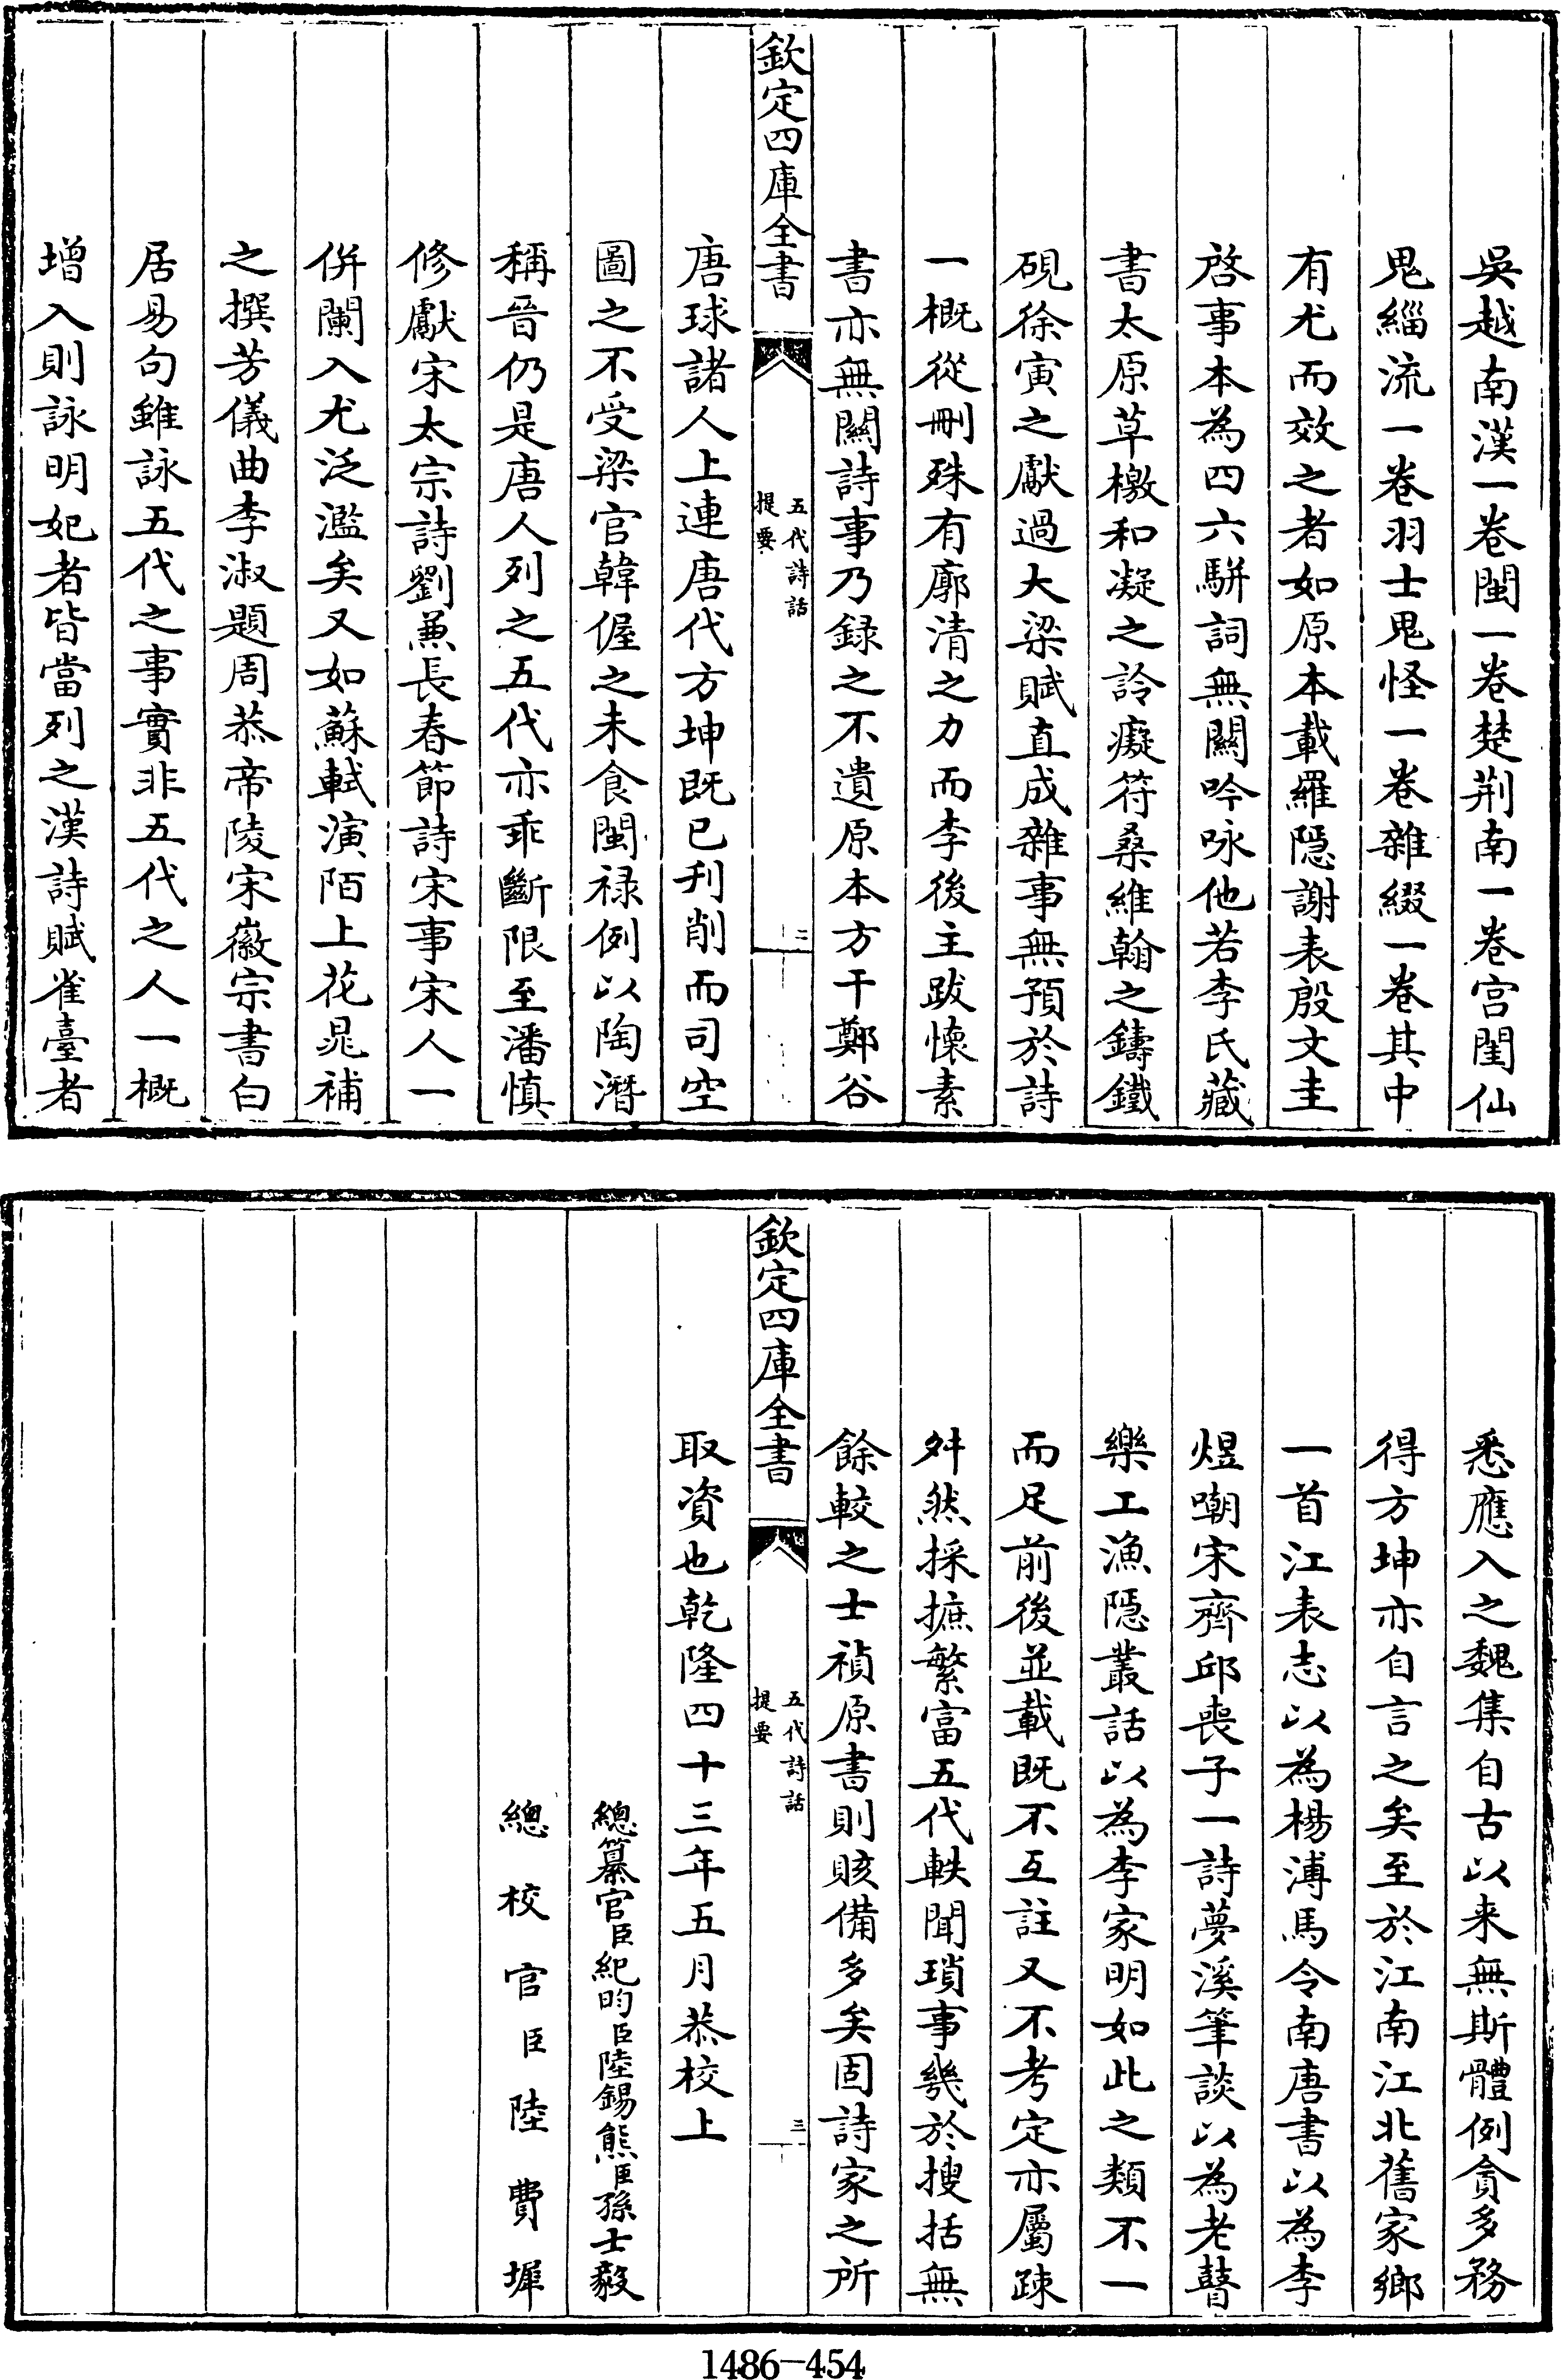 吳越南漢一卷閩一卷楚荆南一卷宫閨仙
鬼緇流一卷羽士鬼怪一卷雜綴一卷其中
有尤而效之者如原本載羅隠謝表殷文圭
啓事本為四六駢詞無闗吟咏他若李氏藏
書太原草檄和凝之詅癡符桑維翰之鑄鐵
硯徐寅之獻過大梁賦直成雜事無預於詩
一概從刪殊有廓清之力而李後主跋懐素
書亦無闗詩事乃録之不遺原本方干鄭谷
欽定四庫全書
五代詩話
提要
二
唐球諸人上連唐代方坤既已刋削而司空
圖之不受梁官韓偓之未食閩禄例以陶潛
稱晉仍是唐人列之五代亦乖斷限至潘慎
修獻宋太宗詩劉兼長春節詩宋事宋人一
併闌入尤泛濫矣又如蘇軾演陌上花晁補
之撰芳儀曲李淑題周恭帝陵宋徽宗書白
居易句雖詠五代之事實非五代之人一概
増入則詠明妃者皆當列之漢詩賦雀臺者
悉應入之魏集自古以来無斯體例貪多務
得方坤亦自言之矣至於江南江北舊家鄉
一首江表志以為楊溥馬令南唐書以為李
煜嘲宋齊邱喪子一詩夢溪筆談以為老瞽
樂工漁隠叢話以為李家明如此之類不一
而足前後並載既不互註又不考定亦屬疎
舛然採摭繁富五代軼聞瑣事幾於搜括無
餘較之士禎原書則賅備多矣固詩家之所
欽定四庫全書
五代詩話
提要
三
取資也乾隆四十三年五月恭校上
總纂官臣紀昀臣陸錫熊臣孫士毅
總校官臣陸費墀
1486-454